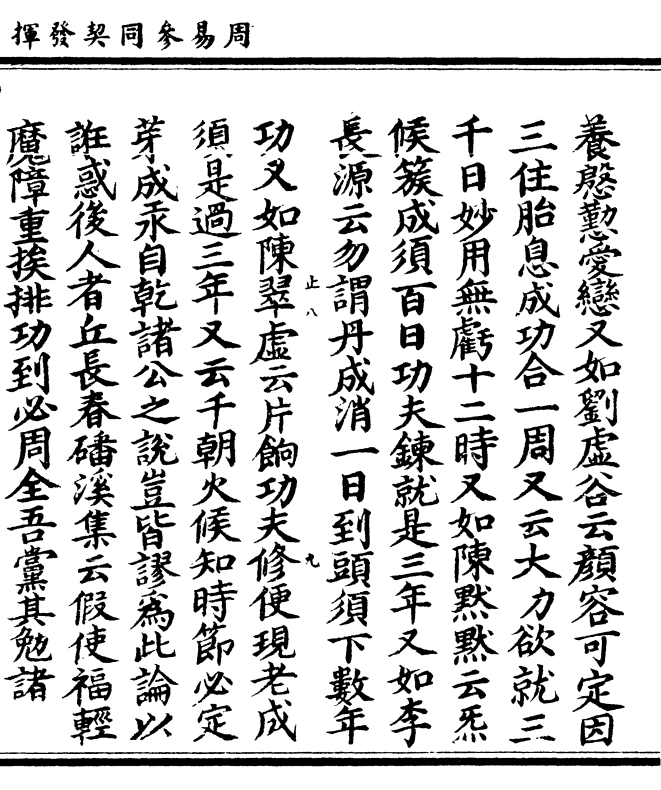 周易參同契發揮
養慇懃愛戀又如劉虛谷云顏容可定因
三住胎息成功合一周又云大力欲就三
千日妙用無虧十二時又如陳默默云炁
候簇成須百日功夫鍊就是三年又如李
長源云勿謂丹成消一日到頭須下數年
功又如陳翠虛云片餉功夫修便現老成
須是過三年又云千朝火候知時節必定
芽成汞自乾諸公之說豈皆謬爲此論以
誑惑後人者丘長春磻溪集云假使福輕
魔障重挨排功到必周全吾黨其勉諸
止八
九